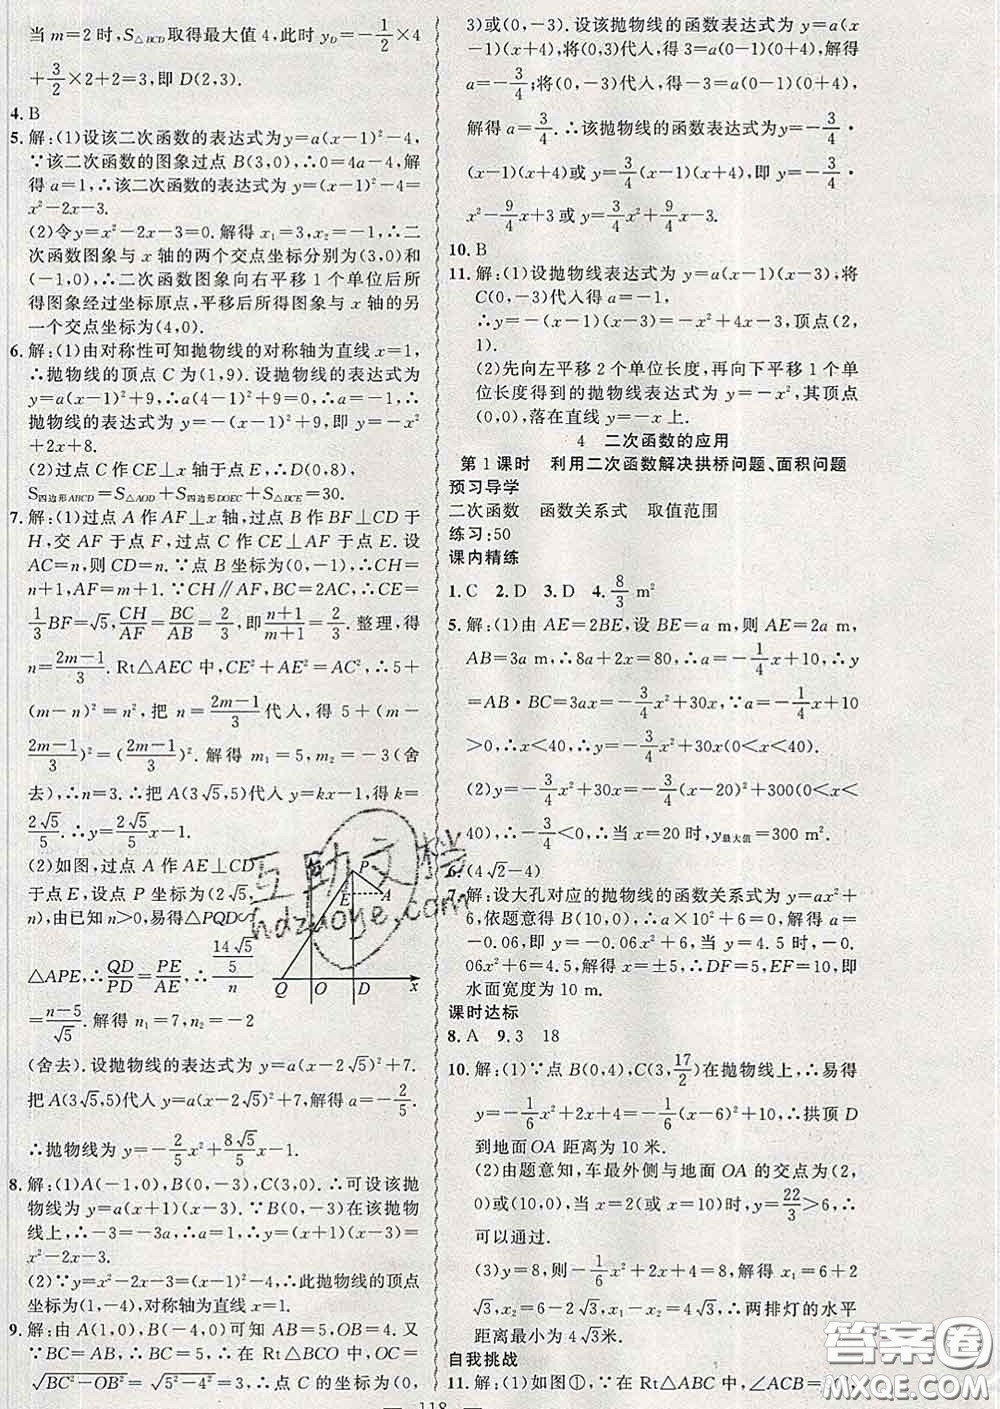 当 m=2 时, S△BCD 取得最大值 4, 此时 y_D=-1/2×4
+3/2×2+2=3, 即 D(2,3).
4. B
5. 解:(1)设该二次函数的表达式为 y=a(x-1)²-4,
∵该二次函数的图象过点 B(3,0), ∴0=4a-4, 解
得 a=1, ∴该二次函数的表达式为 y=(x-1)²-4=
x²-2x-3.
(2)令 y=x²-2x-3=0. 解得 x₁=3, x₂=-1, ∴二
次函数图象与 x 轴的两个交点坐标分别为(3,0)和
(-1,0), ∴二次函数图象向右平移 1 个单位后所
得图象经过坐标原点, 平移后所得图象与 x 轴的另
一个交点坐标为(4,0).
6. 解:(1)由对称性可知抛物线的对称轴为直线 x=1,
∴抛物线的顶点 C 为(1,9). 设抛物线的表达式为
y=a(x-1)²+9, ∴a(4-1)²+9=0, ∴a=-1, ∴
抛物线的表达式为 y=-(x-1)²+9, 即 y=-x²
+2x+8.
(2)过点 C 作 CE⊥x 轴于点 E, ∴D(0,8),
S四边形ABCD=S△AOD+S四边形DOEC+S△BCE=30.
7. 解:(1)过点 A 作 AF⊥x 轴, 过点 B 作 BF⊥CD 于
H, 交 AF 于点 F, 过点 C 作 CE⊥AF 于点 E. 设
AC=n, 则 CD=n. ∵点 B 坐标为(0,-1), ∴CH=
n+1, AF=m+1. ∵CH∥AF, BC=2AC, ∴CE=
1/3 BF=√5, CH/AF=BC/AB=2/3, 即 (n+1)/(m+1)=2/3. 整理, 得
n=(2m-1)/3. Rt△AEC 中, CE²+AE²=AC², ∴5+
(m-n)²=n², 把 n=(2m-1)/3 代入, 得 5+(m-
(2m-1)/3)²=((2m-1)/3)². 解得 m₁=5, m₂=-3(舍
去), ∴n=3. ∴把 A(3√5,5)代入 y=kx-1, 得 k=
2√5/5. ∴y=2√5/5 x-1.
(2)如图, 过点 A 作 AE⊥CD
于点 E, 设点 P 坐标为(2√5,
n), 由已知 n>0, 易得△PQD∽
△APE, ∴QD/PD=PE/AE, ∴(14√5/5)/n
=(n-5)/√5. 解得 n₁=7, n₂=-2
P
E
A
Q O D x
(舍去). 设抛物线的表达式为 y=a(x-2√5)²+7.
把 A(3√5,5)代入 y=a(x-2√5)²+7, 解得 a=-2/5.
∴抛物线为 y=-2/5x²+8√5/5 x-1.
8. 解:(1)A(-1,0), B(0,-3), C(3,0). ∴可设该抛
物线为 y=a(x+1)(x-3). ∵B(0,-3)在该抛物
线上, ∴-3=-3a, ∴a=1, ∴抛物线的表达式为 y=
x²-2x-3.
(2)∵y=x²-2x-3=(x-1)²-4, ∴此抛物线的顶点
坐标为(1,-4), 对称轴为直线 x=1.
9. 解:由 A(1,0), B(-4,0)可知 AB=5, OB=4. 又
∵BC=AB, ∴BC=5. 在 Rt△BCO 中, OC=
√(BC²-OB²)=√(5²-4²)=3, ∴C 点的坐标为(0,
3)或(0,-3). 设该抛物线的函数表达式为 y=a(x
-1)(x+4), 将(0,3)代入, 得 3=a(0-1)(0+4), 解得
a=-3/4; 将(0,-3)代入, 得-3=a(0-1)(0+4),
解得 a=3/4. ∴该抛物线的函数表达式为 y=-3/4·
(x-1)(x+4)或 y=3/4(x-1)(x+4), 即 y=-3/4
x²-9/4x+3 或 y=3/4x²+9/4x-3.
10. B
11. 解:(1)设抛物线表达式为 y=a(x-1)(x-3), 将
C(0,-3)代入得 a=-1,
∴y=-(x-1)(x-3)=-x²+4x-3, 顶点(2,
1).
(2)先向左平移 2 个单位长度, 再向下平移 1 个单
位长度得到的抛物线表达式为 y=-x², 其顶点
(0,0), 落在直线 y=-x 上.
4 二次函数的应用
第 1 课时 利用二次函数解决拱桥问题、面积问题
预习导学
二次函数 函数关系式 取值范围
练习:50
课内精练
1. C 2. D 3. D 4. 8/3 m²
5. 解:(1)由 AE=2BE, 设 BE=a m, 则 AE=2a m,
AB=3a m, ∴8a+2x=80, ∴a=-1/4x+10, ∴y
=AB·BC=3ax=-3/4x²+30x, ∵a=-1/4x+10
>0, ∴x<40, ∴y=-3/4x²+30x(0<x<40).
(2)y=-3/4x²+30x=-3/4(x-20)²+300(0<x<
40), ∵-3/4<0, ∴当 x=20 时, y最大值=300 m².
6. (4√2-4)
7. 解:设大孔对应的抛物线的函数关系式为 y=ax²+
6, 依题意得 B(10,0), ∴a×10²+6=0, 解得 a=
-0.06, 即 y=-0.06x²+6, 当 y=4.5 时, -0.
06x²+6=4.5, 解得 x=±5, ∴DF=5, EF=10, 即
水面宽度为 10 m.
课时达标
8. A 9. 3 18
10. 解:(1)∵点 B(0,4), C(3,17/2)在抛物线上, ∴易得
y=-1/6x²+2x+4=-1/6(x-6)²+10, ∴拱顶 D
到地面 OA 距离为 10 米.
(2)由题意知, 车最外侧与地面 OA 的交点为(2,
0)或(10,0), 当 x=2(或 x=10)时, y=22/3>6, ∴
可以通过.
(3)y=8, 则-1/6x²+2x+4=8, 解得 x₁=6+2
√3, x₂=6-2√3, x₁-x₂=4√3, ∴两排灯的水平
距离最小为 4√3米.
自我挑战
11. 解:(1)如图①, ∵在 Rt△ABC 中, ∠ACB=
— 118 —
互助文档
hdzuoye.com
答案圈
MXQE.COM